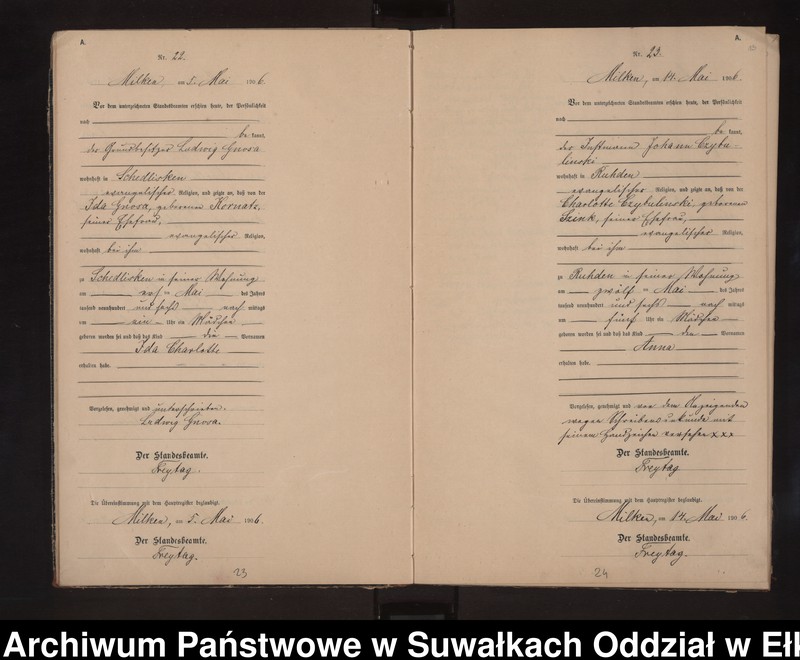 A.
Nr. 22.
Milken, am 5. Mai 1906.
Vor dem unterzeichneten Standesbeamten erschien heute, der Persönlichkeit
nach
be kannt,
der Grundbesitzer Ludwig
wohnhaft in Schedlisken
evangelischer Religion, und zeigte an, daß von der
Ida geborenen
seiner Ehefrau,
evangelischer Religion,
wohnhaft bei ihm
zu Schedlisken in seiner Wohnung
am ten Mai des Jahres
tausend neunhundert und sechs nach mittags
um ein Uhr ein Mädchen
geboren worden sei und daß das Kind die Vornamen
Ida Charlotte
erhalten habe.
Vorgelesen, genehmigt und unterschrieben.
Ludwig
Der Standesbeamte.
Freytag.
Die Übereinstimmung mit dem Hauptregister beglaubigt.
Milken, am 5. Mai 1906.
Der Standesbeamte.
Freytag.
23
A.
Nr. 23.
Milken, am 14. Mai 1906.
Vor dem unterzeichneten Standesbeamten erschien heute, der Persönlichkeit
nach
be kannt,
der Instmann Johann Czybu-
linski
wohnhaft in Ruhden
evangelischer Religion, und zeigte an, daß von der
Charlotte Czybulinski, geborenen
seiner Ehefrau,
evangelischer Religion,
wohnhaft bei ihm
zu Ruhden in seiner Wohnung
am zwölften Mai des Jahres
tausend neunhundert und sechs nach mittags
um fünf Uhr ein Mädchen
geboren worden sei und daß das Kind den Vornamen
Anna
erhalten habe.
Vorgelesen, genehmigt und von dem Anzeigenden
wegen Schreibensunkunde mit
seinem Handzeichen versehen xxx
Der Standesbeamte.
Freytag
Die Übereinstimmung mit dem Hauptregister beglaubigt.
Milken, am 14. Mai 1906.
Der Standesbeamte.
Freytag.
24
Archiwum Państwowe w Suwałkach Oddział w Ełk